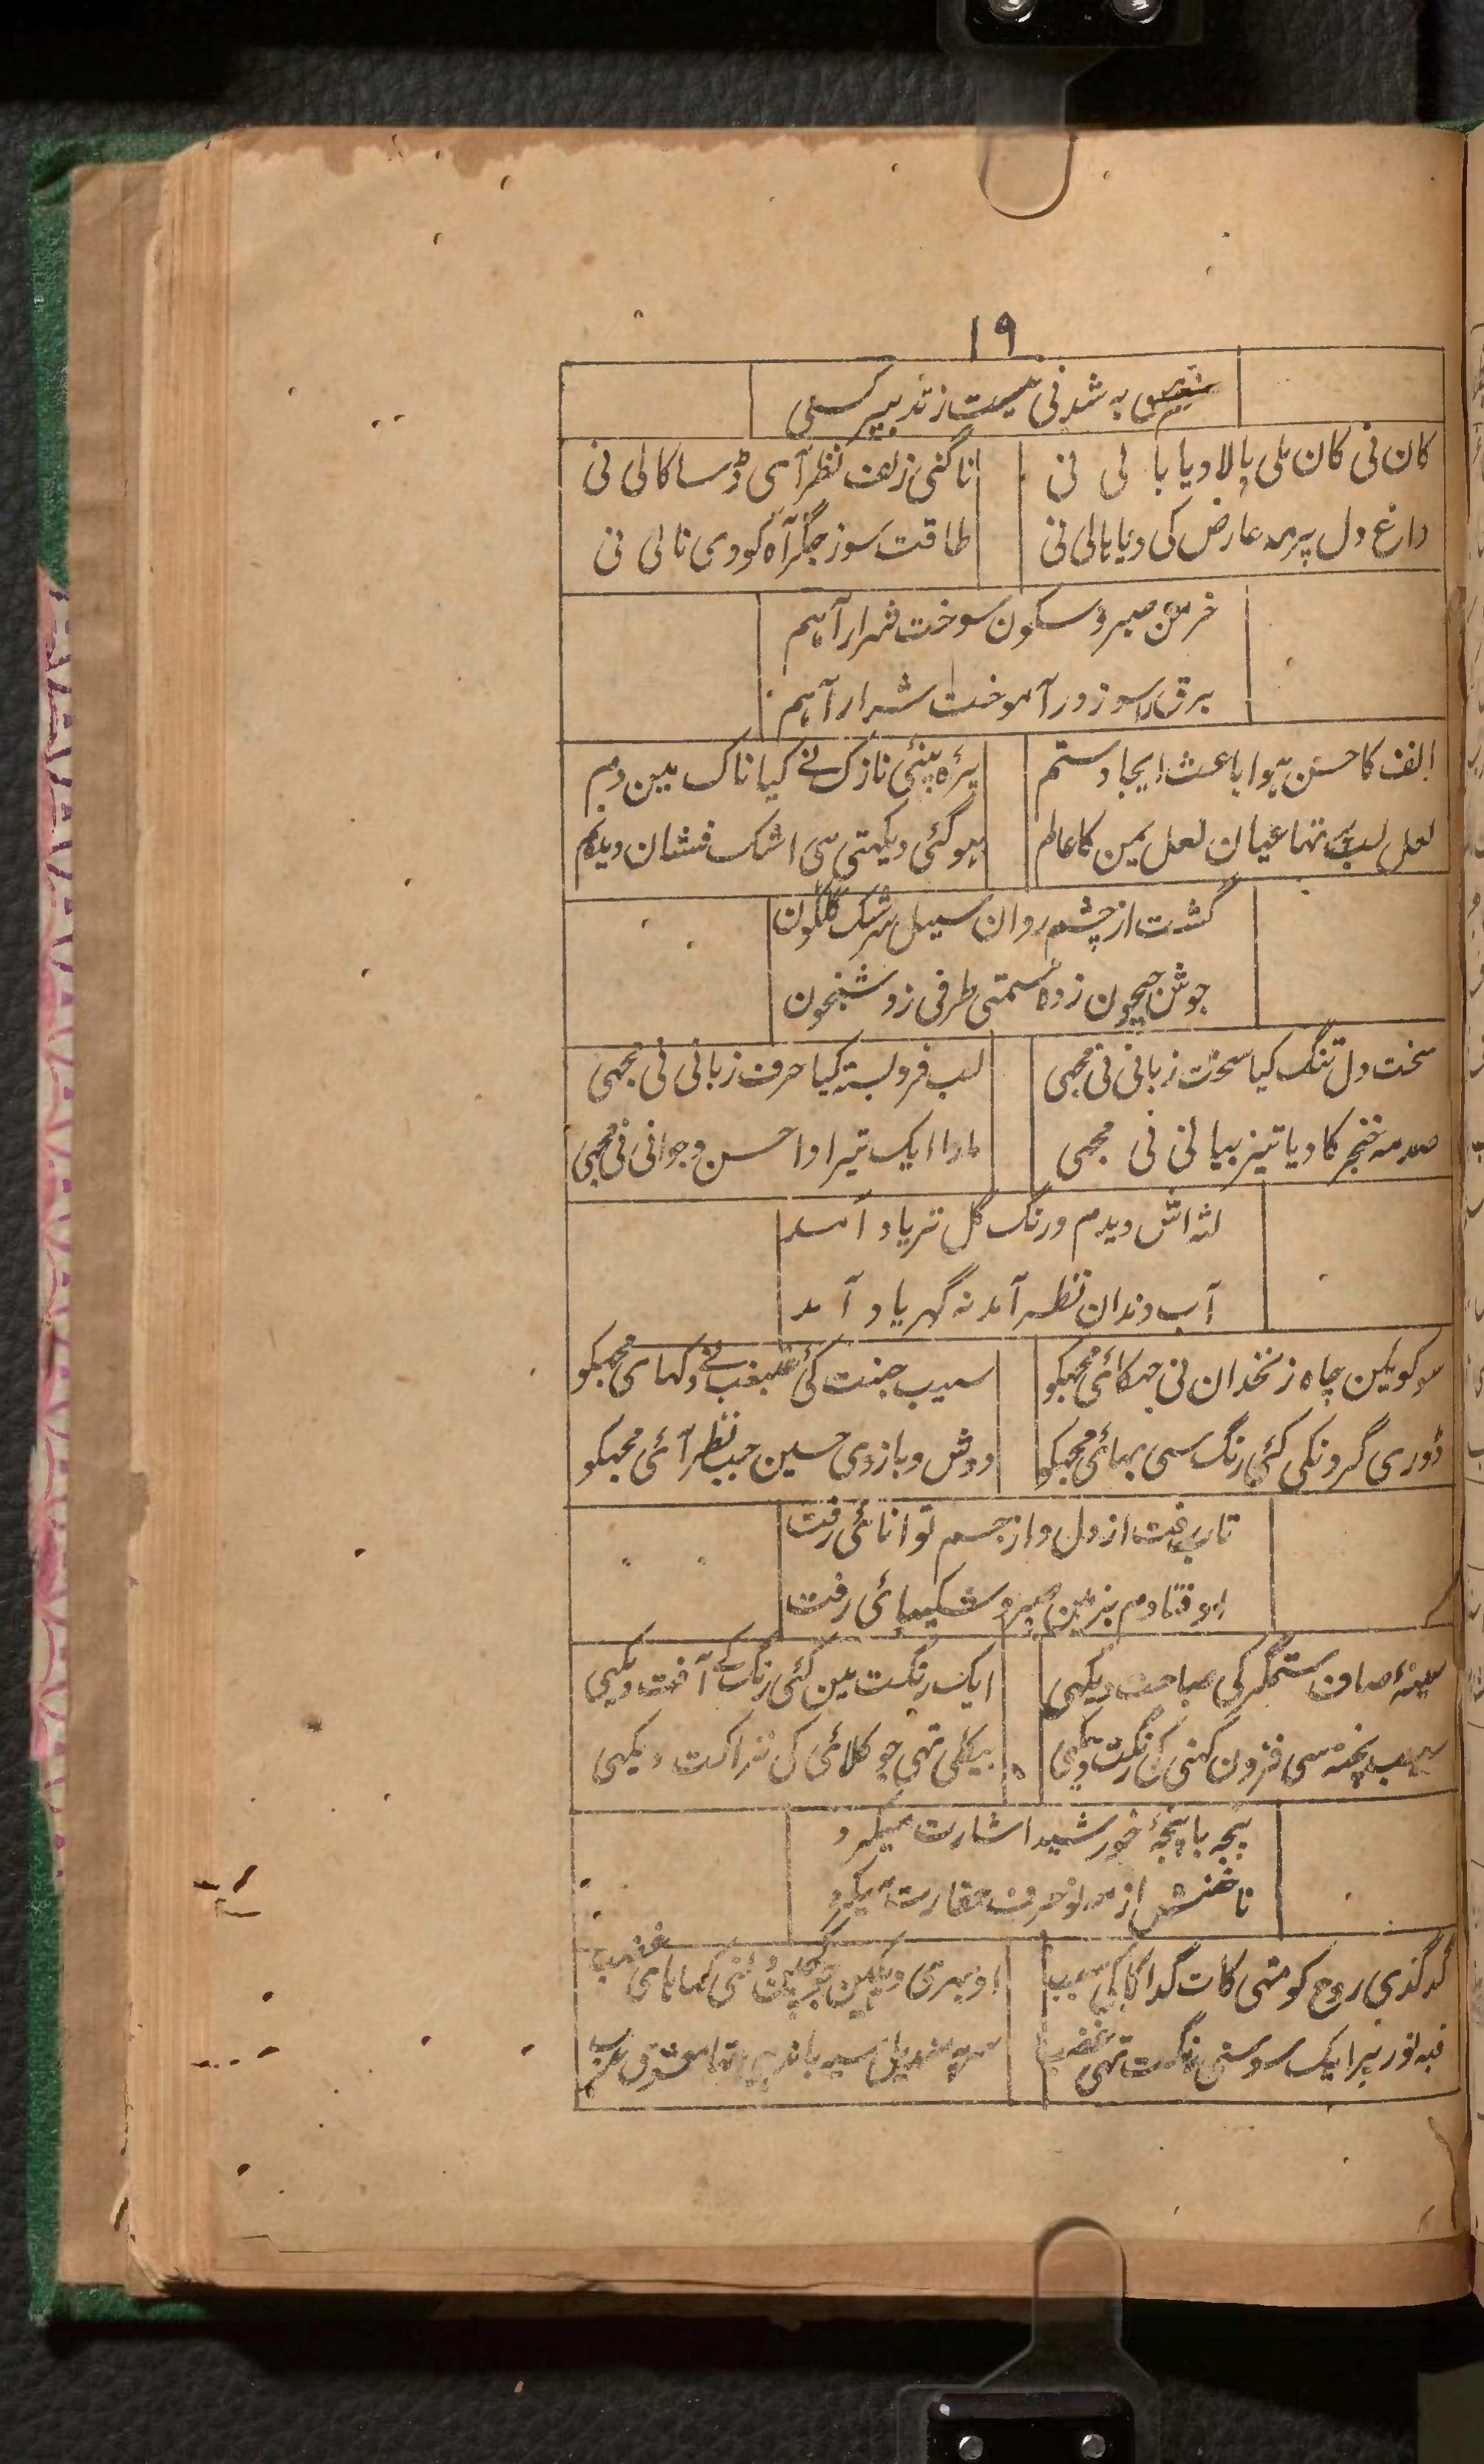 ۱۹
به شدنی نیست ز تدبیر کسی
کان نی کان ملی بالا دیا با لی نی
ناگنی زلف نظر آسی ڈسا کالی نی
داغ دل پر مہ عارض کی دیا بالی نی
طاقت سوز جگر آہ کو دی نالی نی
خرمن صبر و سکون سوخت شرار آہم
برق را سوز در آموخت شرار آہم
الف کا حسن ہوا باعث ایجاد ستم
پرہ بینئی نازک نے کیا ناک مین دم
لعل لب تہا عیان لعل یمن کا عالم
ہو گئی دیکہتی سی اشک فشان دیدہ
گشت از چشم روان سیل سرشک گلگون
جوش جیحون زدہ سمتی طرفی زد شبخون
سخت دل تنگ کیا سخت زبانی نی مجہی
لب فرو بستہ کیا حرف زبانی نی مجہی
صدمہ خنجر کا دیا تیز بیانی نی مجہی
مارا ایک تیر ادا حسن و جوانی نی مجہی
لثہ اش دیدم و رنگ گل تر یاد آمد
آب دندان نظر آمد نہ گہر یاد آمد
سو کویلین چاہ زنخدان نی جہکائی مجہکو
سیب جنت کی غبغب نے دکہای مجہکو
ڈوری گردنکی کئی رنگ سی بہائی مجہکو
دوش و بازوی حسین جب نظر آئی مجہکو
تاب رفت از دل و از جسم توانائی رفت
اوفتادم بزمین صبر و شکیبائی رفت
سینہء صاف ستمگر کی صباحت دیکہی
ایک رنگت مین کئی رنگ کے آفت دیکہی
سیب پختہ سی فزون کہنی کی رنگت دیکہی
بیکلی تہی جو کلائی کی نزاکت دیکہی
پنجہ با پنجہٴ خورشید اشارت میکرد
ناخنش از مہ نو حرف حقارت میکرد
گدگدی روح کو متہی کات گدا کی سبب
اوبہری دیکہین جو کچین نئی کہابای غضب
قبہ نور پر ایک سوسنی رنگت تہی غضب
سر پہ مندیل سیہ باندہی تہا معشوق عرب